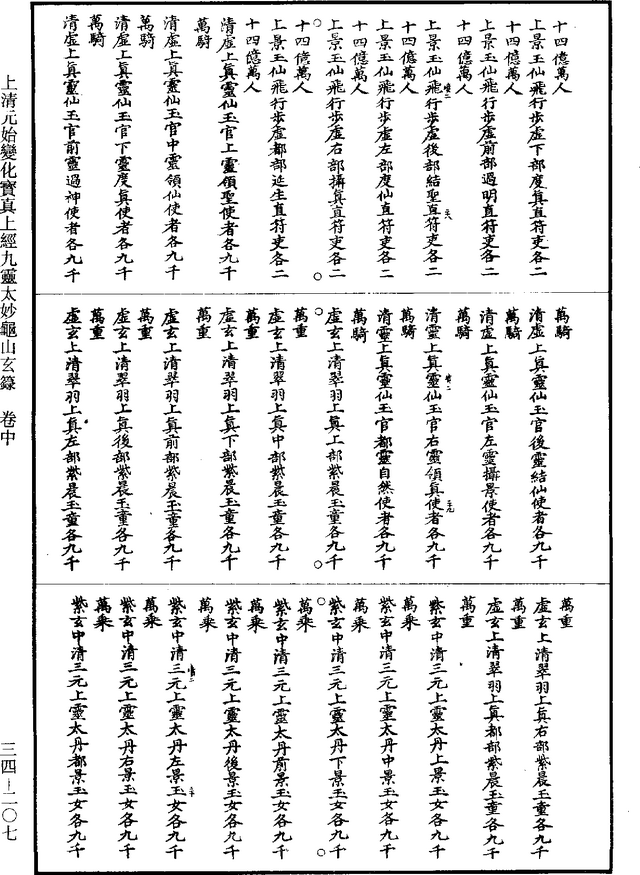 十四億萬人
上景玉仙飛行步虛下部度真直符吏各二
十四億萬人
上景玉仙飛行步虛前部過明直符吏各二
十四億萬人
上景玉仙飛行步虛後部結聖直符吏各二
十四億萬人
上景玉仙飛行步虛左部度仙直符吏各二
十四億萬人
上景玉仙飛行步虛右部攝真直符吏各二
十四億萬人
上景玉仙飛行步虛都部延生直符吏各二
十四億萬人
清虛上真靈仙玉官上靈領聖使者各九千
萬騎
清虛上真靈仙玉官中靈領仙使者各九千
萬騎
清虛上真靈仙玉官下靈度真使者各九千
萬騎
清虛上真靈仙玉官前靈過神使者各九千
萬騎
清虛上真靈仙玉官後靈結仙使者各九千
萬騎
清虛上真靈仙玉官左靈攝景使者各九千
萬騎
清靈上真靈仙玉官右靈領真使者各九千
萬騎
清靈上真靈仙玉官都靈自然使者各九千
萬騎
虛玄上清翠羽上真上部紫晨玉童各九千
萬重
虛玄上清翠羽上真中部紫晨玉童各九千
萬重
虛玄上清翠羽上真下部紫晨玉童各九千
萬重
虛玄上清翠羽上真前部紫晨玉童各九千
萬重
虛玄上清翠羽上真後部紫晨玉童各九千
萬重
虛玄上清翠羽上真左部紫晨玉童各九千
萬重
虛玄上清翠羽上真右部紫晨玉童各九千
萬重
虛玄上清翠羽上真都部紫晨玉童各九千
萬重
紫玄中清三元上靈太丹上景玉女各九千
萬乘
紫玄中清三元上靈太丹中景玉女各九千
萬乘
紫玄中清三元上靈太丹下景玉女各九千
萬乘
紫玄中清三元上靈太丹前景玉女各九千
萬乘
紫玄中清三元上靈太丹後景玉女各九千
萬乘
紫玄中清三元上靈太丹左景玉女各九千
萬乘
紫玄中清三元上靈太丹右景玉女各九千
萬乘
紫玄中清三元上靈太丹都景玉女各九千
上清元始變化寶真上經九靈太妙龜山玄籙 卷中
三四-二〇七